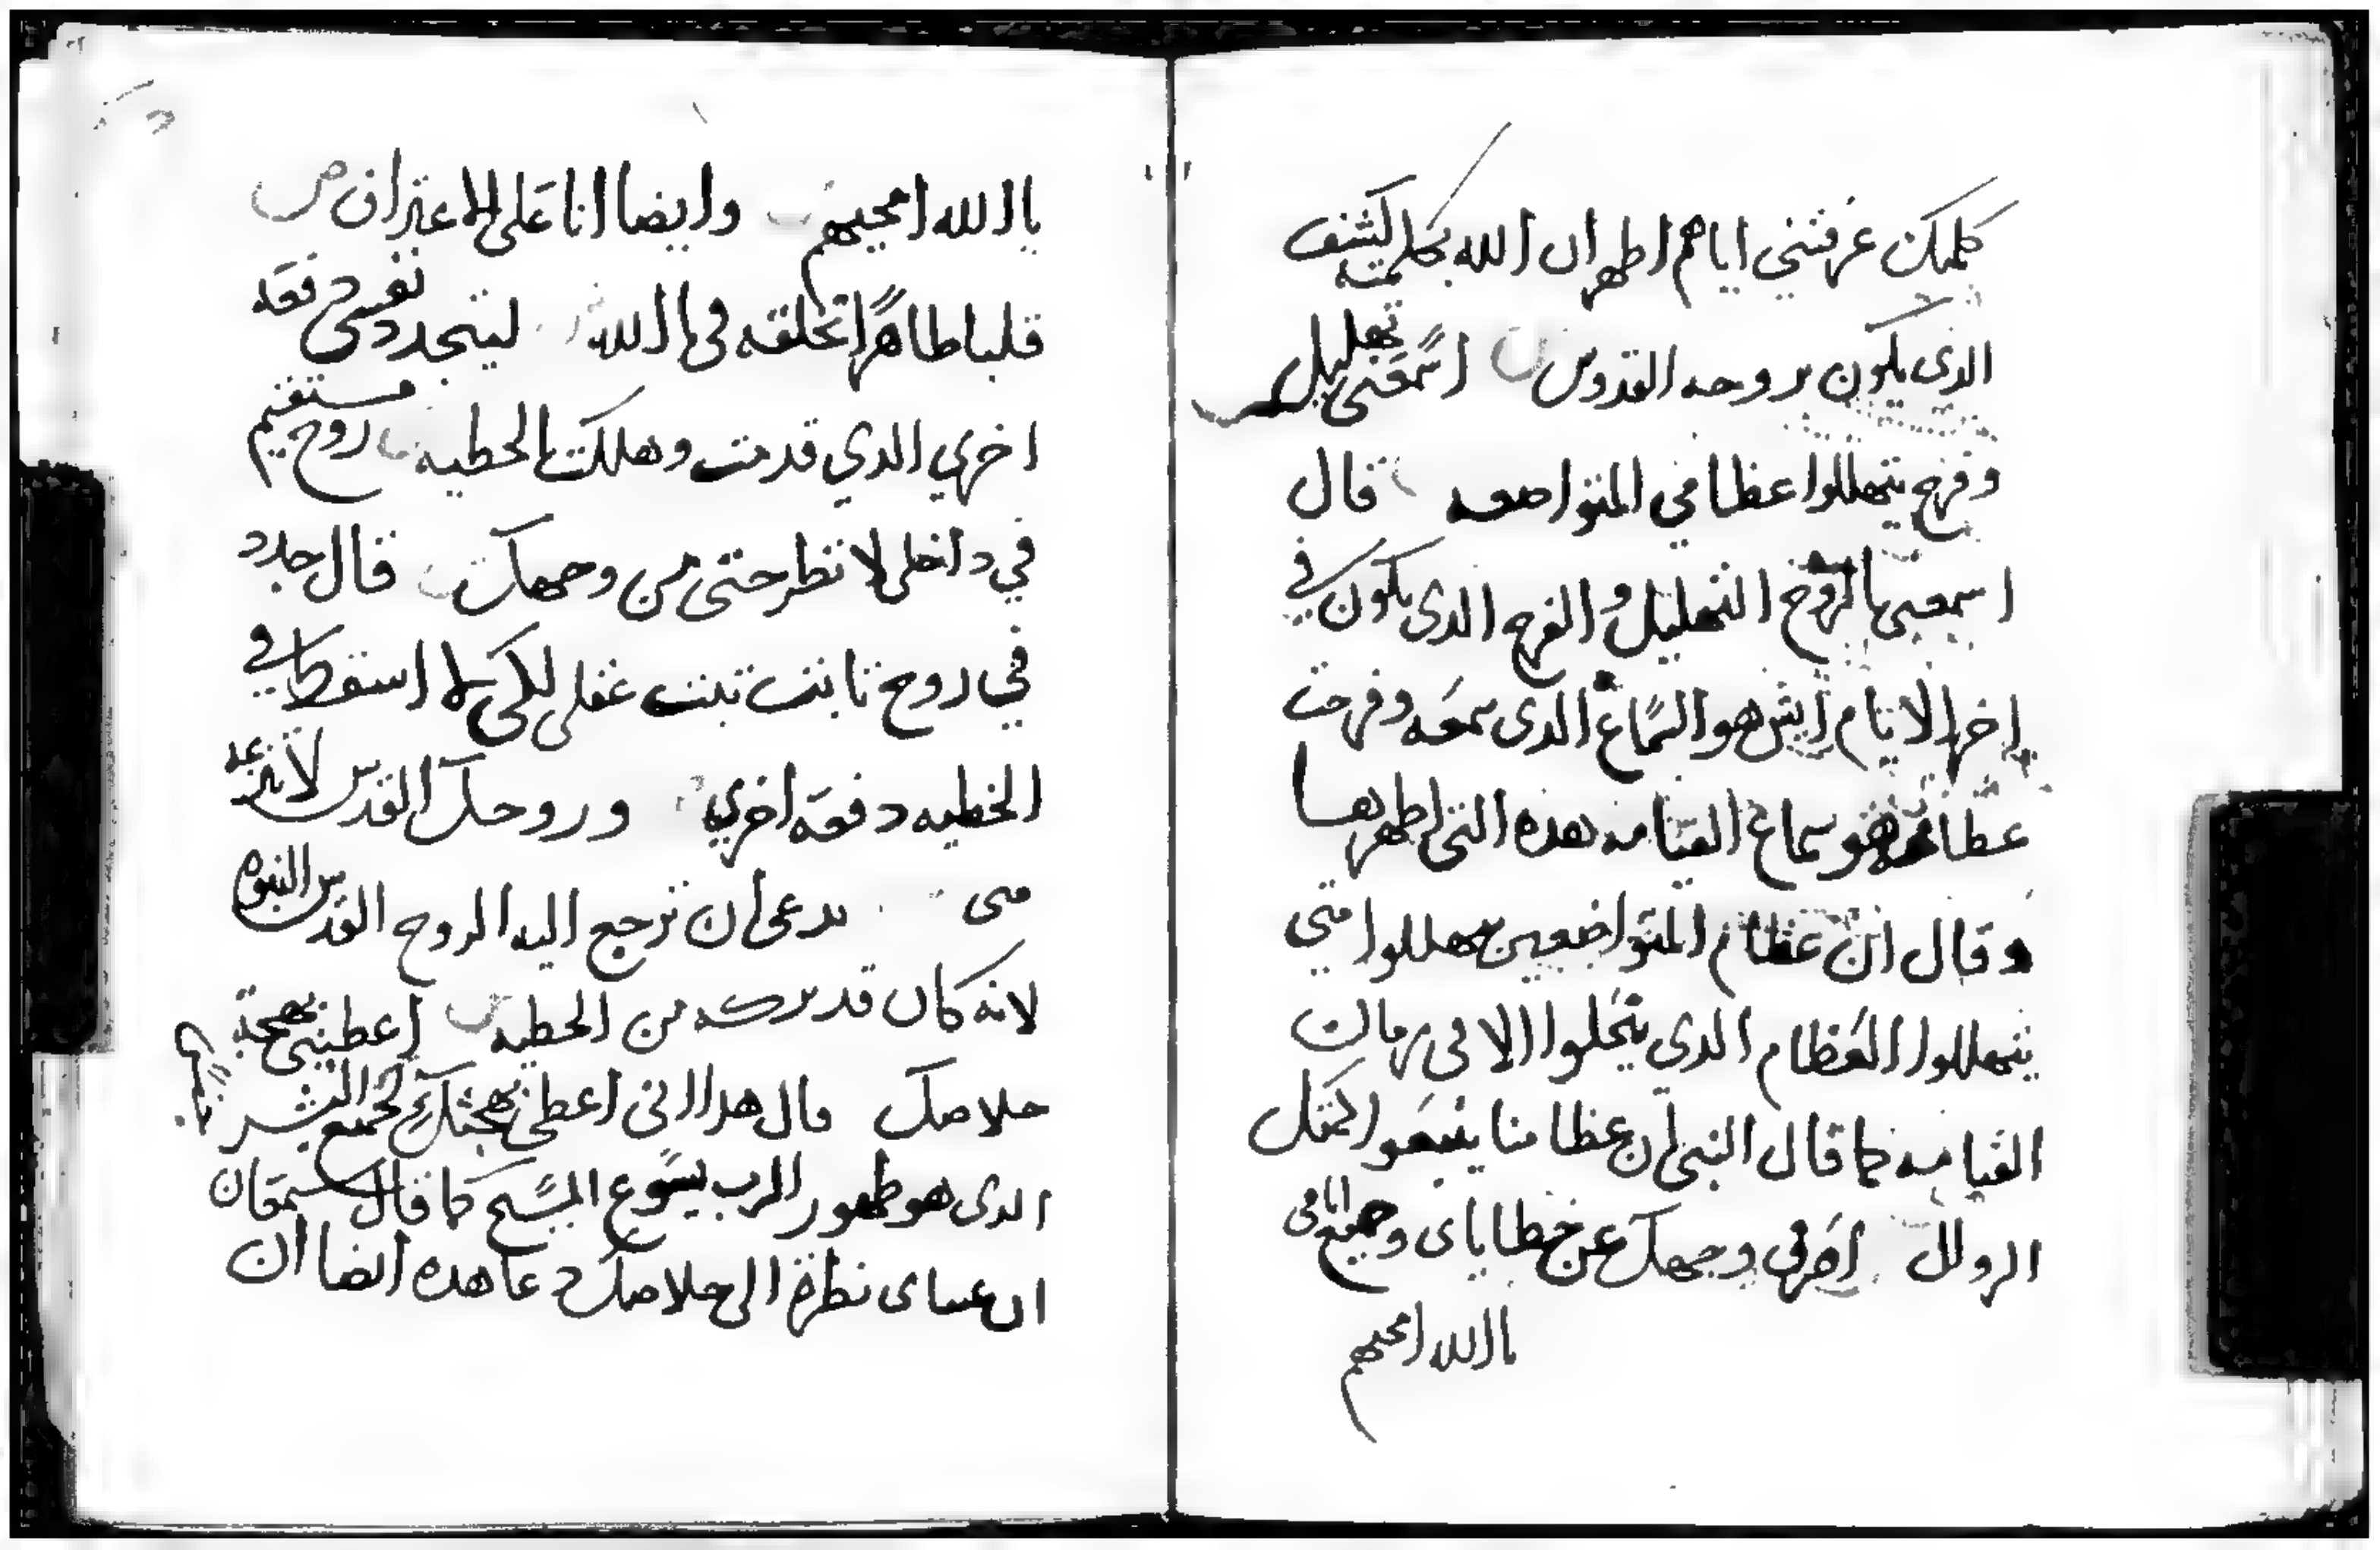 كلمتك عرفتني اياهم اظهر ان الله بكلمته كشف
الذي يكون بروحه القدوس اسمعني تهليل
وفرح يتهللوا عظامي المتواضعه قال
اسمعني بالروح التهليل والفرح الدي يكون في
اخر الايام ايش هو السماع الدي سمعه وفرحت
عظامه هو سماع القيامه هده التي اظهرها
وقال ان عظام المتواضعين يتهللوا متي
يتهللوا العظام الدي ينحلوا الا في زمان
القيامه كما قال النبي ان عظامنا ينبعوا كمتل
اصرف وجهك عن خطاياي وجميع اتامي
يا الله امحيهم
يا الله امحيهم وايضا انا علي الاعتراف
قلبا طاهرا تخلقه في يا الله ليتجدد نفسي دفعه
اخري الدي قدمت وهلكت بالخطيه روح مستقيم
في داخلي لا تطرحني من وجهك قال جدد
في روح تابت تبت عقلي لكي لا اسقط في
الخطيه دفعه اخري وروحك القدس لا تنزعه
مني يدعي ان ترجع اليه الروح القدس النبوه
لانه كان قد تركه من الخطيه اعطيني بهجة
خلاصك قال هدا اني اعطي بهجتك لجميع البشر
الدي هو ظهور الرب يسوع المسيح كما قال سمعان
ان عيناي نظرة الي خلاصك دعا هده ايضا ان